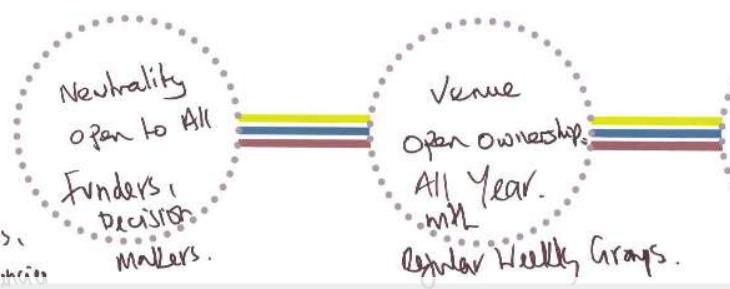 Neutrality
open to All
Funders,
Decision
Makers.
Venue
Open Ownership.
All Year.
with
Regular Weekly Groups.